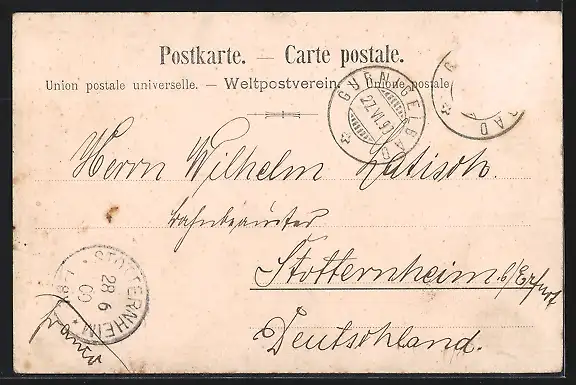 Postkarte. — Carte postale.
Union postale universelle. — Weltpostverein. — Unione postale
GURNIGELBAD
27.VI.
BAD
Herrn Wilhelm
Bahnbeamter
Stotternheim b/Erfurt
Deutschland.
STOTTERNHEIM
28 6
00